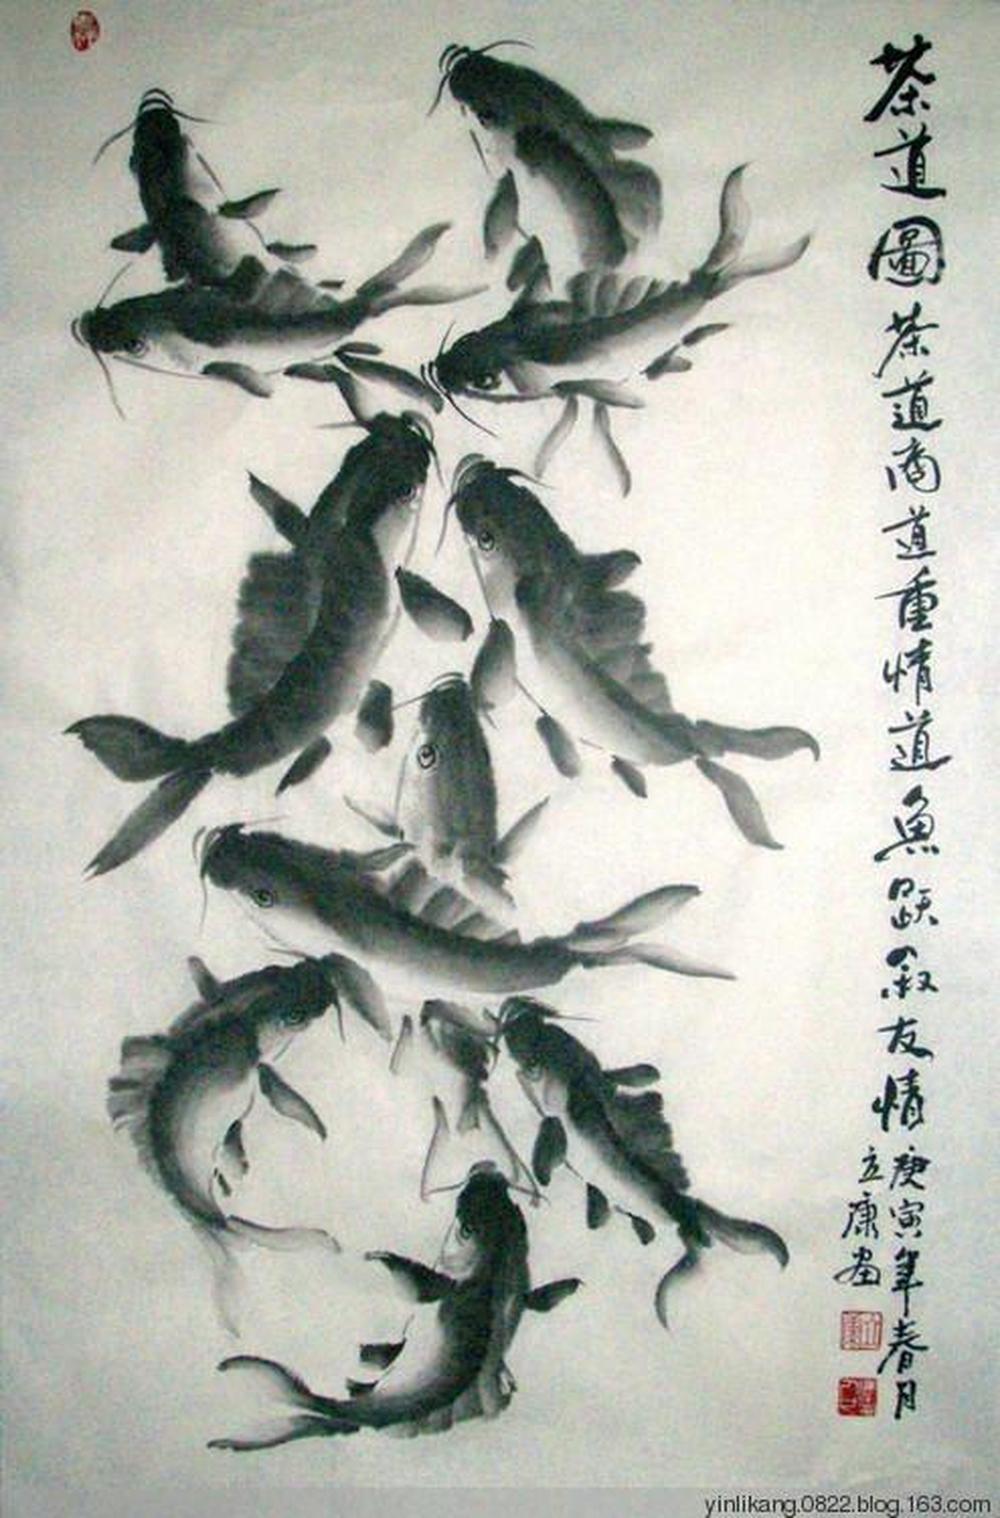 茶道圖茶道商道重情道魚跃叙友情
庚寅年春月
立康画
yinlikang.0822.blog.163.com